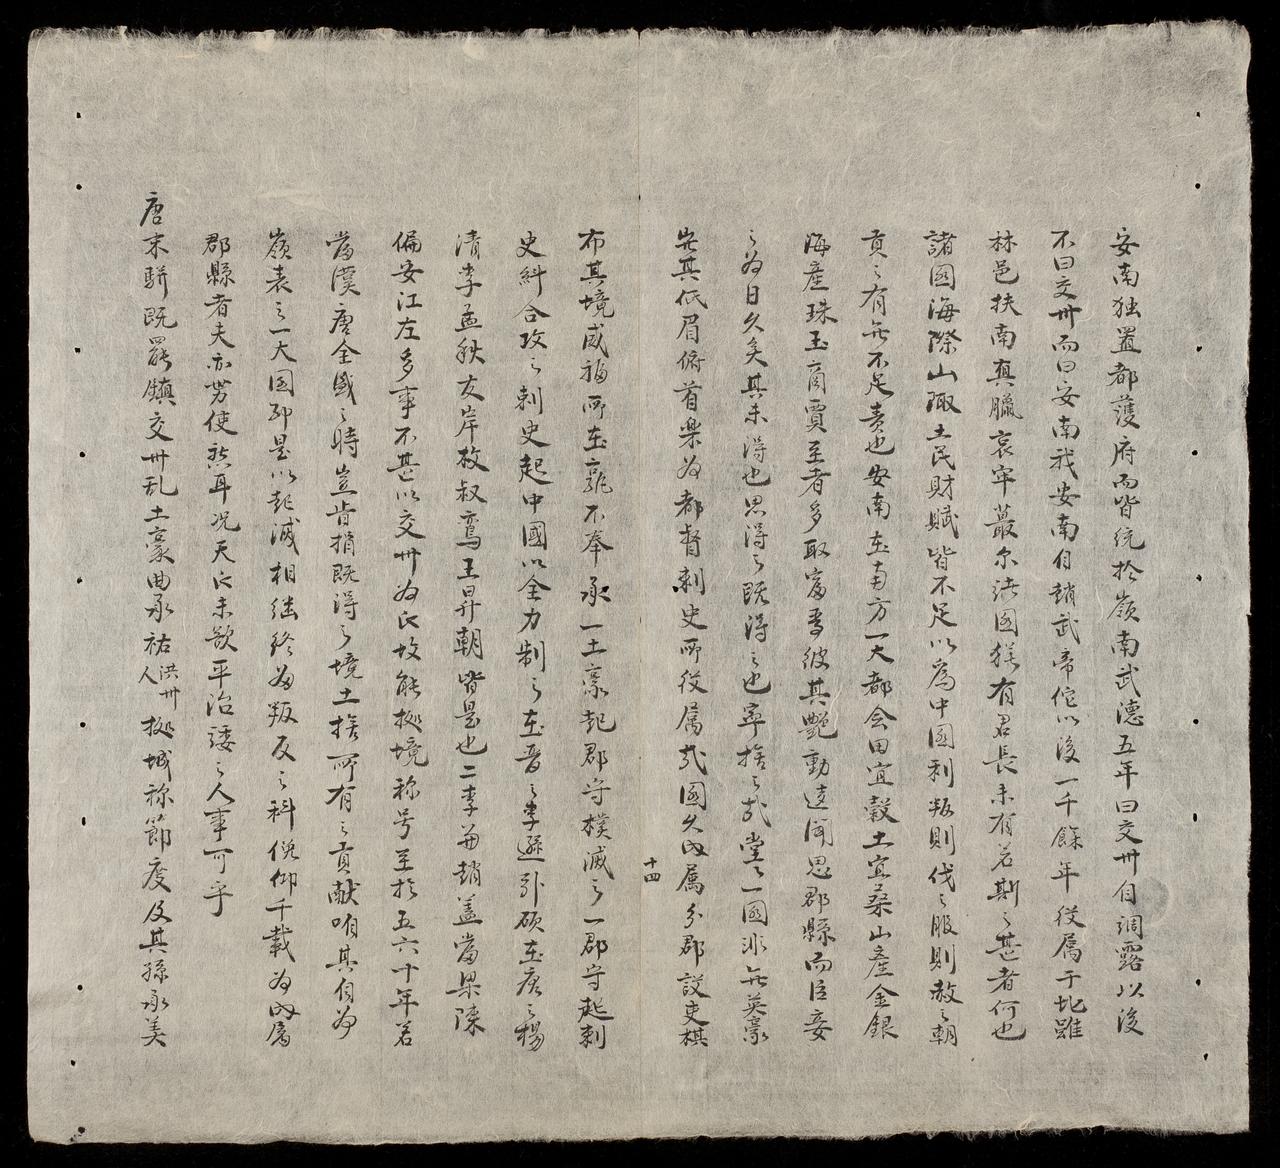 安南独置都護府而皆統於嶺南武德五年曰交州自調露以後
不曰交州而曰安南我安南自趙武帝佗以後一千餘年役属于北雖
林邑扶南真臘哀牢蕞尔諸国猶有君長未有若斯之甚者何也
諸國海際山陬土民財賦皆不足以為中国利叛則伐之服則赦之朝
貢之有无不足責也安南在南方一大都会田宜穀土宜桑山產金銀
海產珠玉商賈至者多取富焉彼其艶動遠聞思郡縣而臣妾
之为日久矣其未得也思得之既得之也寧捨之哉堂々一國非无英豪
其低眉俯首樂为都督刺史所役属哉國久內属分郡設吏棋
十四
布其境威福所在孰不奉承一土豪起郡守撲滅之一郡守起刺
史糾合攻之刺史起中國以全力制之在晋之李遜引碩在唐之楊
清李孟秋友岸枚叔鸞王昇朝皆是也二李並趙盖當梁陳
偏安江左多事不甚以交州为民故能拠境称号至於五六十年若
當漢唐全盛之時豈肯捐既得之境土捨所有之貢献咱其自为
嶺表之一大国耶是以起滅相継終为叛反之科俛仰千載为內属
郡縣者夫亦势使然耳况天之未欲平治諉之人事可乎
唐末駢既罷鎮交州乱土豪曲承祐洪州人拠城称節度及其孫承美